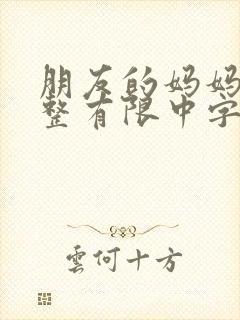 朋友的妈妈
整有限中字
雲何十方